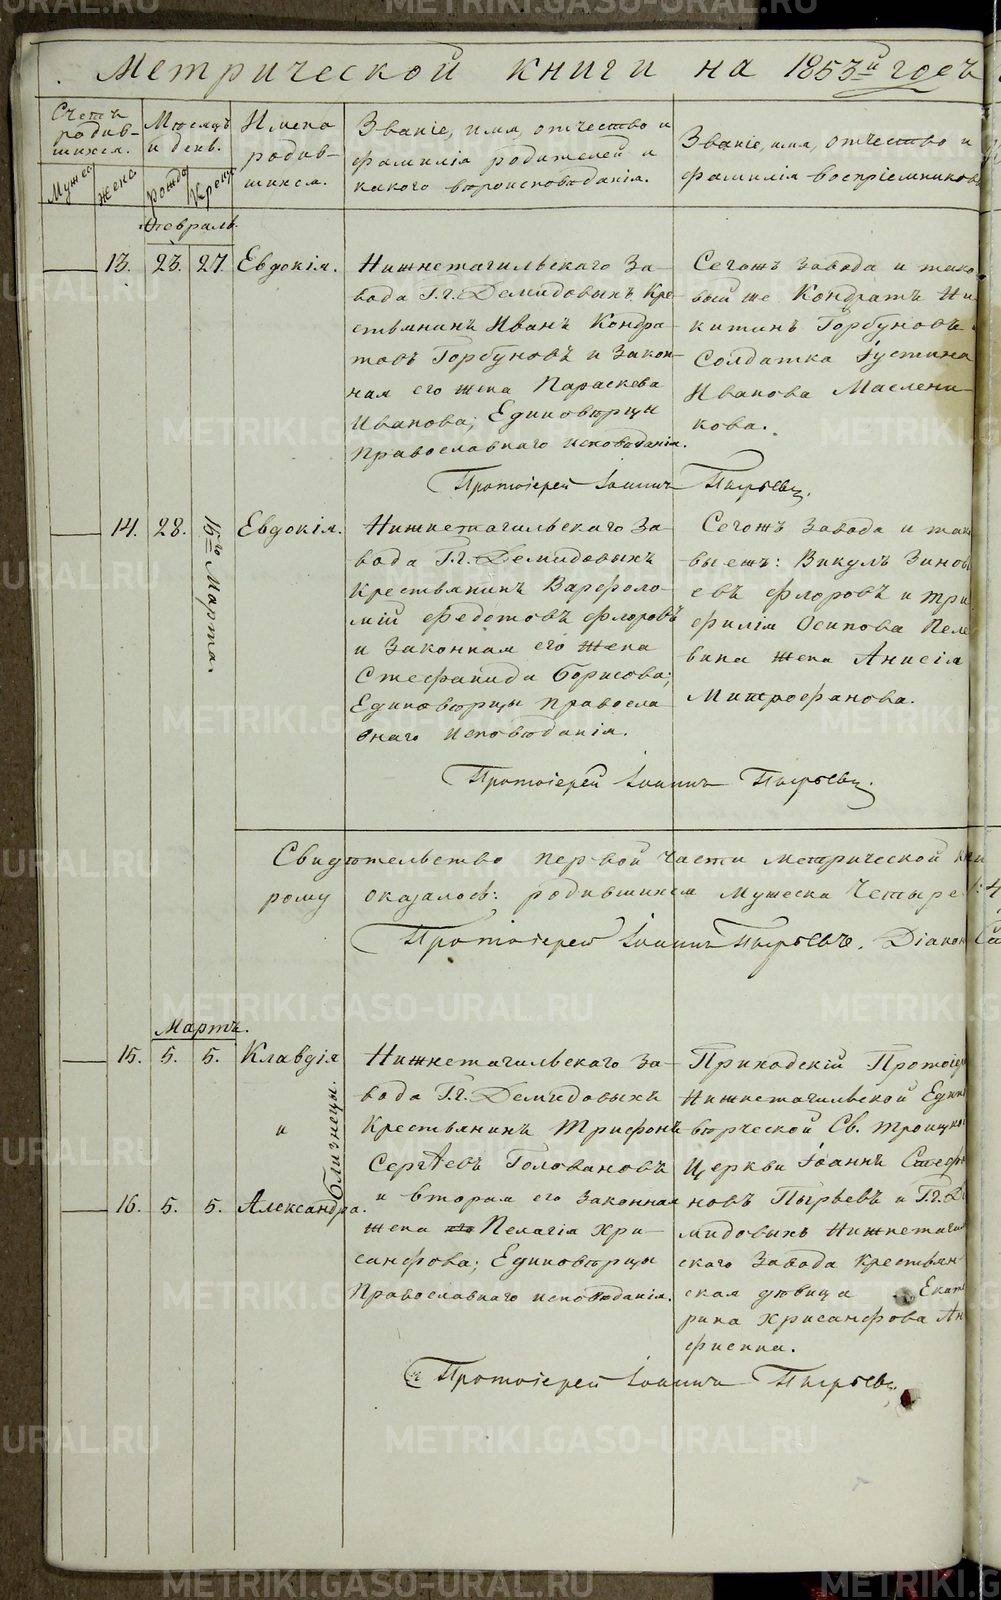 Метрической книги на 1853й годъ
Счетъ
родив-
шихся.
Мужес
женс
Мѣсяцъ
и день.
рожд
крещ
Имена
родив-
шихся.
Званіе, имя, отчество и
фамилія родителей и
какого вѣроисповѣданія.
Званіе, имя, отчество и
фамилія воспріемниковъ
Февраль.
13. 23. 27. Евдокія.
Нижнетагильскаго За-
вода Г.г. Демидовыхъ Кре-
стьянинъ Иванъ Кондра-
товъ Горбуновъ и Закон-
ная его жена Параскева
Иванова; Единовѣрцы
Православнаго исповѣданія.
Сегожъ Завода и тако-
вый же Кондратъ Ни-
китинъ Горбуновъ и
Солдатка Іустина
Иванова Маслени-
кова.
Протоіерей Іоаннъ Пырьевъ.
14. 28. 15го Марта. Евдокія.
Нижнетагильскаго За-
вода Г.г. Демидовыхъ
Крестьянинъ Варфоло-
мій Федотовъ Флоровъ
и Законная его жена
Стефанида Борисова;
Единовѣрцы Правосла-
внаго исповѣданія.
Сегожъ Завода и тако
выежъ: Викулъ Зиновь
евъ Флоровъ и Три
филія Осипова Пеле
вина жена Анисія
Митрофанова.
Протоіерей Іоаннъ Пырьевъ.
Свидѣтельство первой части метрической кни
рому оказалось: родившихся мужеска Четыре: 4
Протоіерей Іоаннъ Пырьевъ. Діакон
Мартъ.
15. 5. 5. Клавдія
и
16. 5. 5. Александра.
близнецы.
Нижнетагильскаго За-
вода Г.г. Демидовыхъ
Крестьянинъ Трифонъ
Сергѣевъ Головановъ
и вторая его законная
жена его Пелагія Хри-
санфова; Единовѣрцы
Православнаго исповѣданія.
Приходскій Протоіер
Нижнетагильской Един
вѣрческой Св. Троицкой
Церкви Іоаннъ Стефа
новъ Пырьевъ и Г.г. Де
мидовыхъ Нижнетагил
скаго Завода Крестьян
ская дѣвица Екате
рина Хрисанфова Ан
фисина.
Протоіерей Іоаннъ Пырьевъ.
METRIKI.GASO-URAL.RU